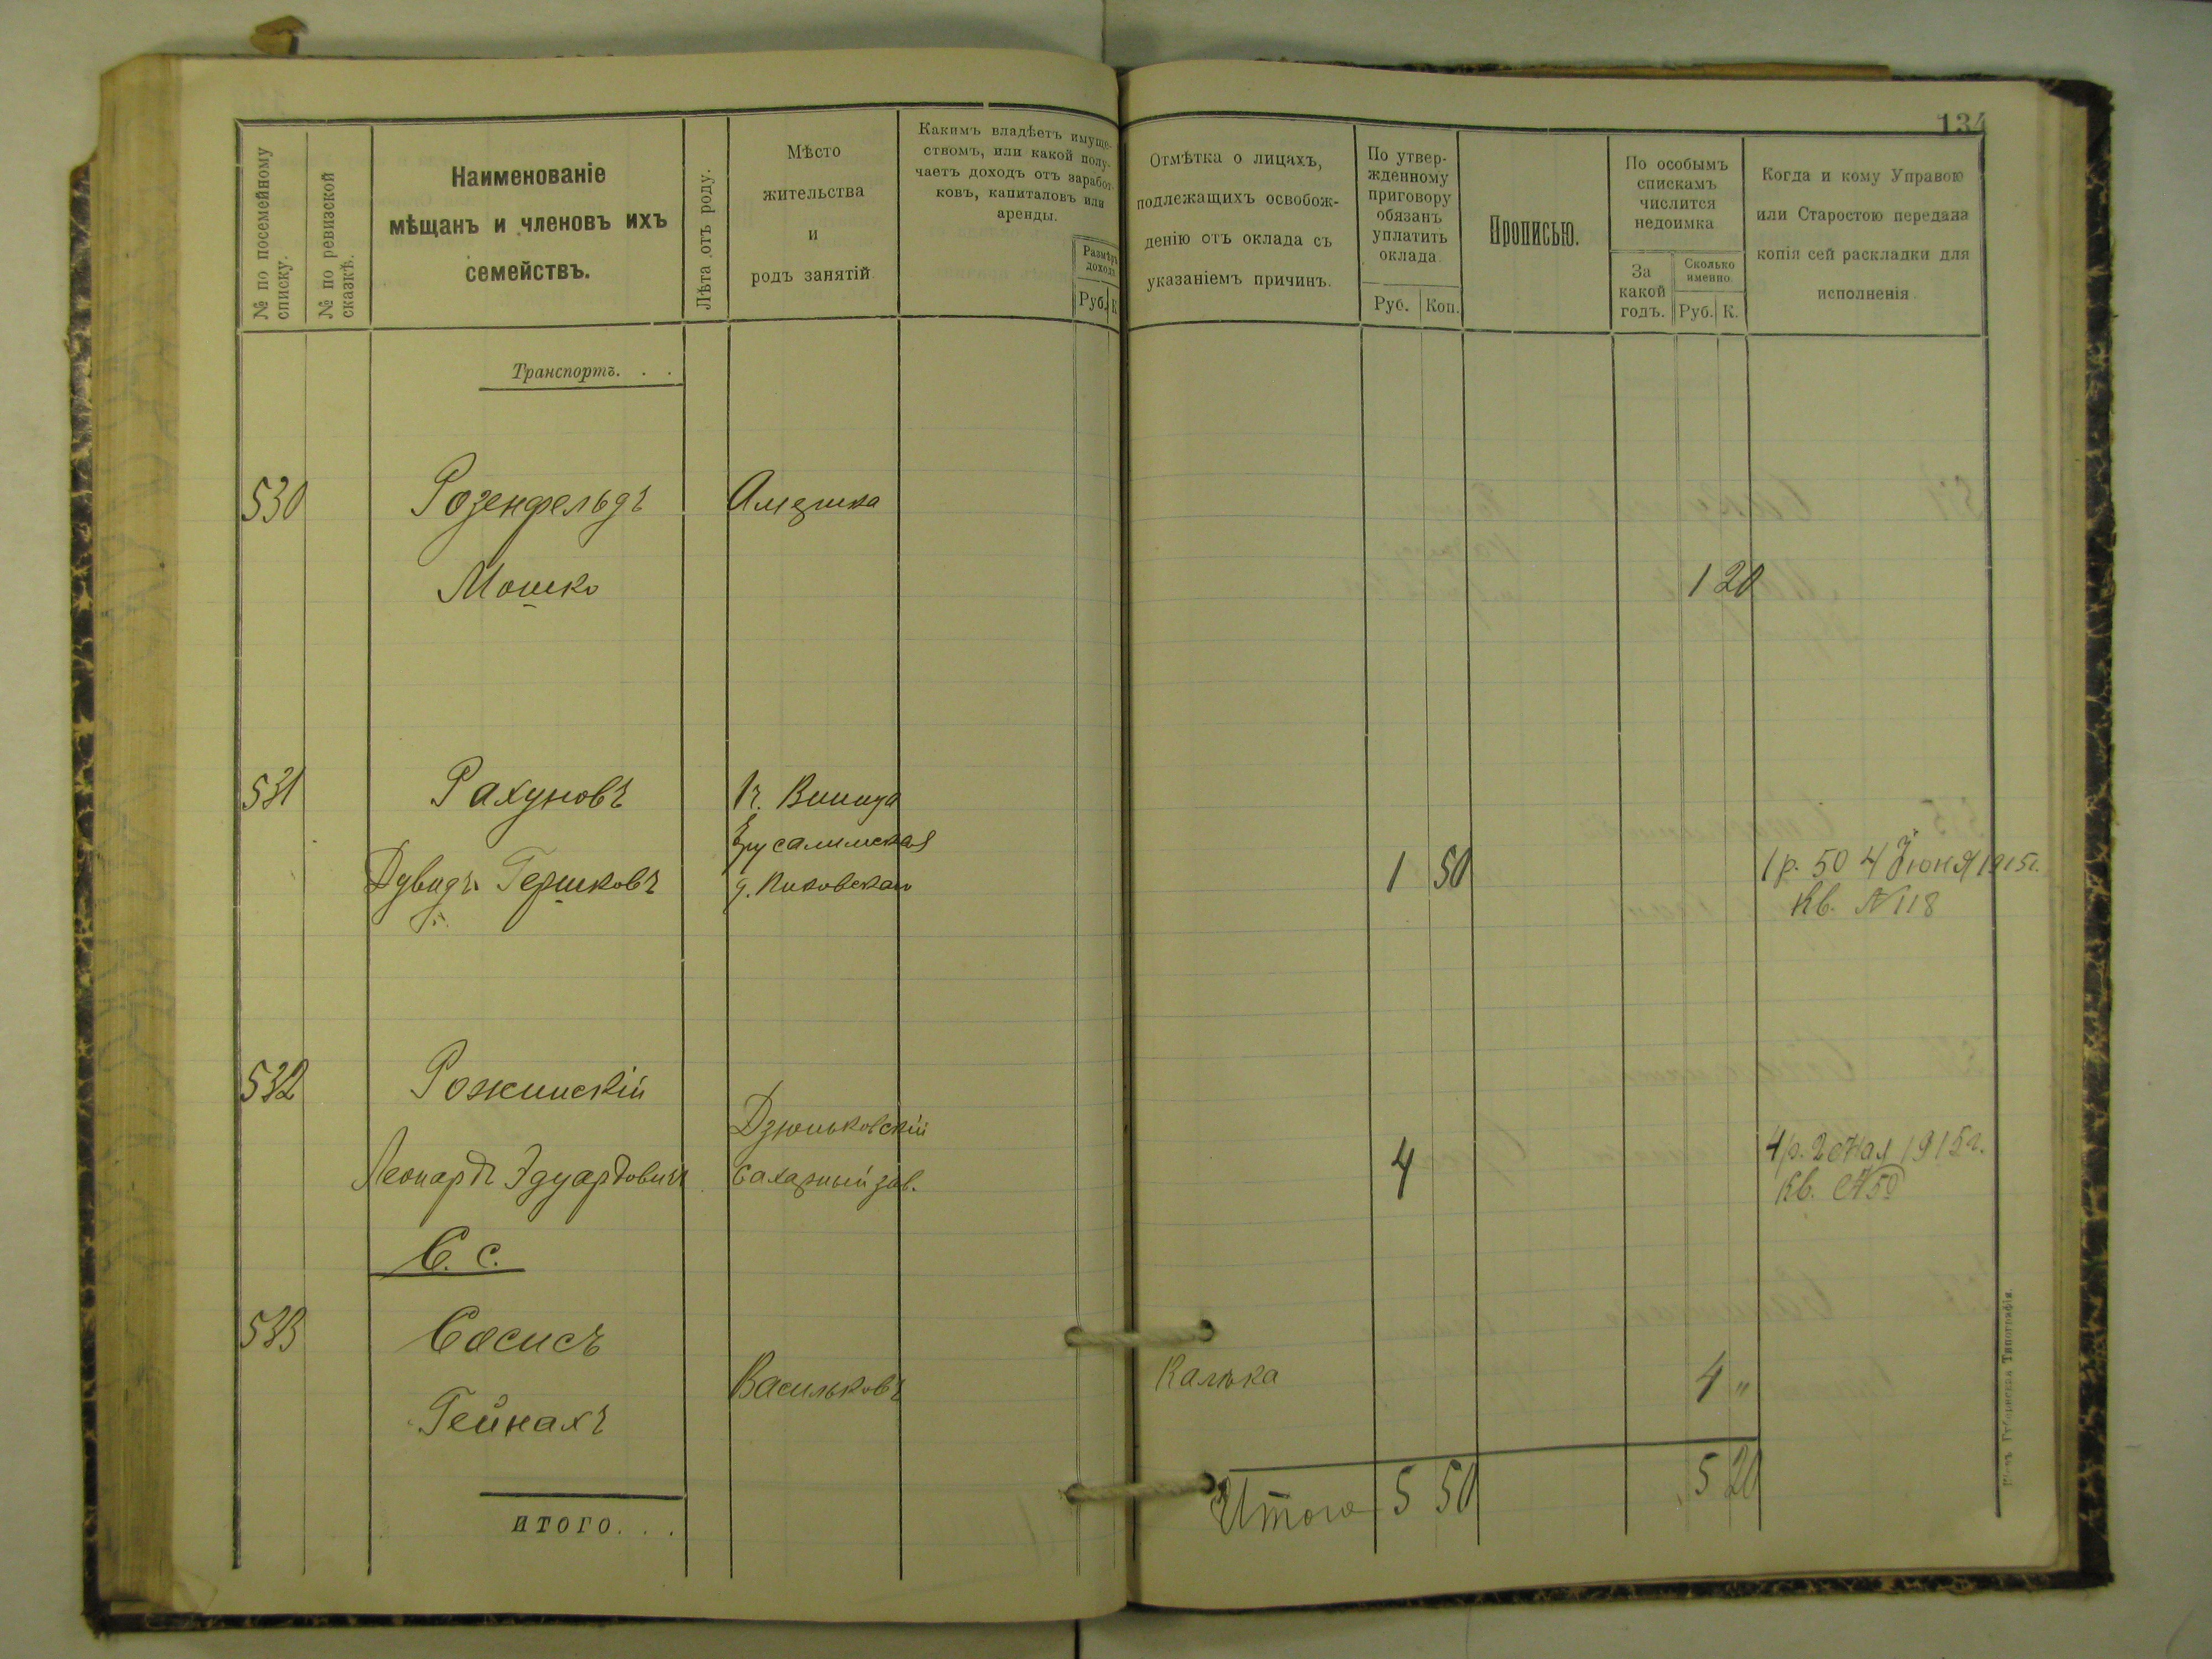 134
№ по посемейному списку.
№ по ревизской сказкѣ.
Наименованіе
мѣщанъ и членовъ ихъ
семействъ.
Лѣта отъ роду.
Мѣсто
жительства
и
родъ занятій
Какимъ владѣетъ имуще-
ствомъ, или какой полу-
чаетъ доходъ отъ заработ-
ковъ, капиталовъ или
аренды.
Размѣръ
дохода
Руб. К
Отмѣтка о лицахъ,
подлежащихъ освобож-
денію отъ оклада съ
указаніемъ причинъ.
По утвер-
жденному
приговору
обязанъ
уплатить
оклада
Руб. Коп.
Прописью.
По особымъ
спискамъ
числится
недоимка
За
какой
годъ.
Сколько
именно.
Руб. К.
Когда и кому Управою
или Старостою передана
копія сей раскладки для
исполненія
Транспортъ. . .
530 Розенфельдъ Америка
Мошко 1 20
531 Рахуновъ г. Винница
Ерусалимская
Дувидъ Гершковъ 1 50 1 р. 50 4 Іюня 1915г.
Кв. № 118
532 Рожинскій
Дзюньковскій
Леонардъ Эдуардовичъ Сахарный зав. 4 4 р. 2 Мая 1915 г.
Кв. № 50
С. с.
533 Сосисъ
Васильковъ Калька 4 "
Гейнахъ
итого. . . Итого 5 50 5 20